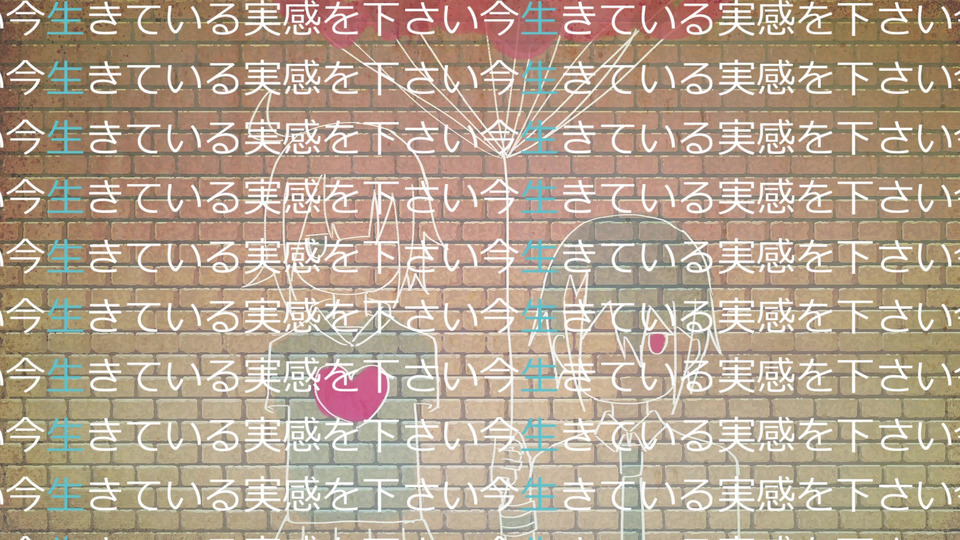 い今生きている実感を下さい今生きている実感を下さい
い今生きている実感を下さい今生きている実感を下さい今
い今生きている実感を下さい今生きている実感を下さい今
い今生きている実感を下さい今生きている実感を下さい今
い今生きている実感を下さい今生きている実感を下さい今
い今生きている実感を下さい今生きている実感を下さい今
い今生きている実感を下さい今生きている実感を下さい今
い今生きている実感を下さい今生きている実感を下さい今
い今生きている実感を下さい今生きている実感を下さい今